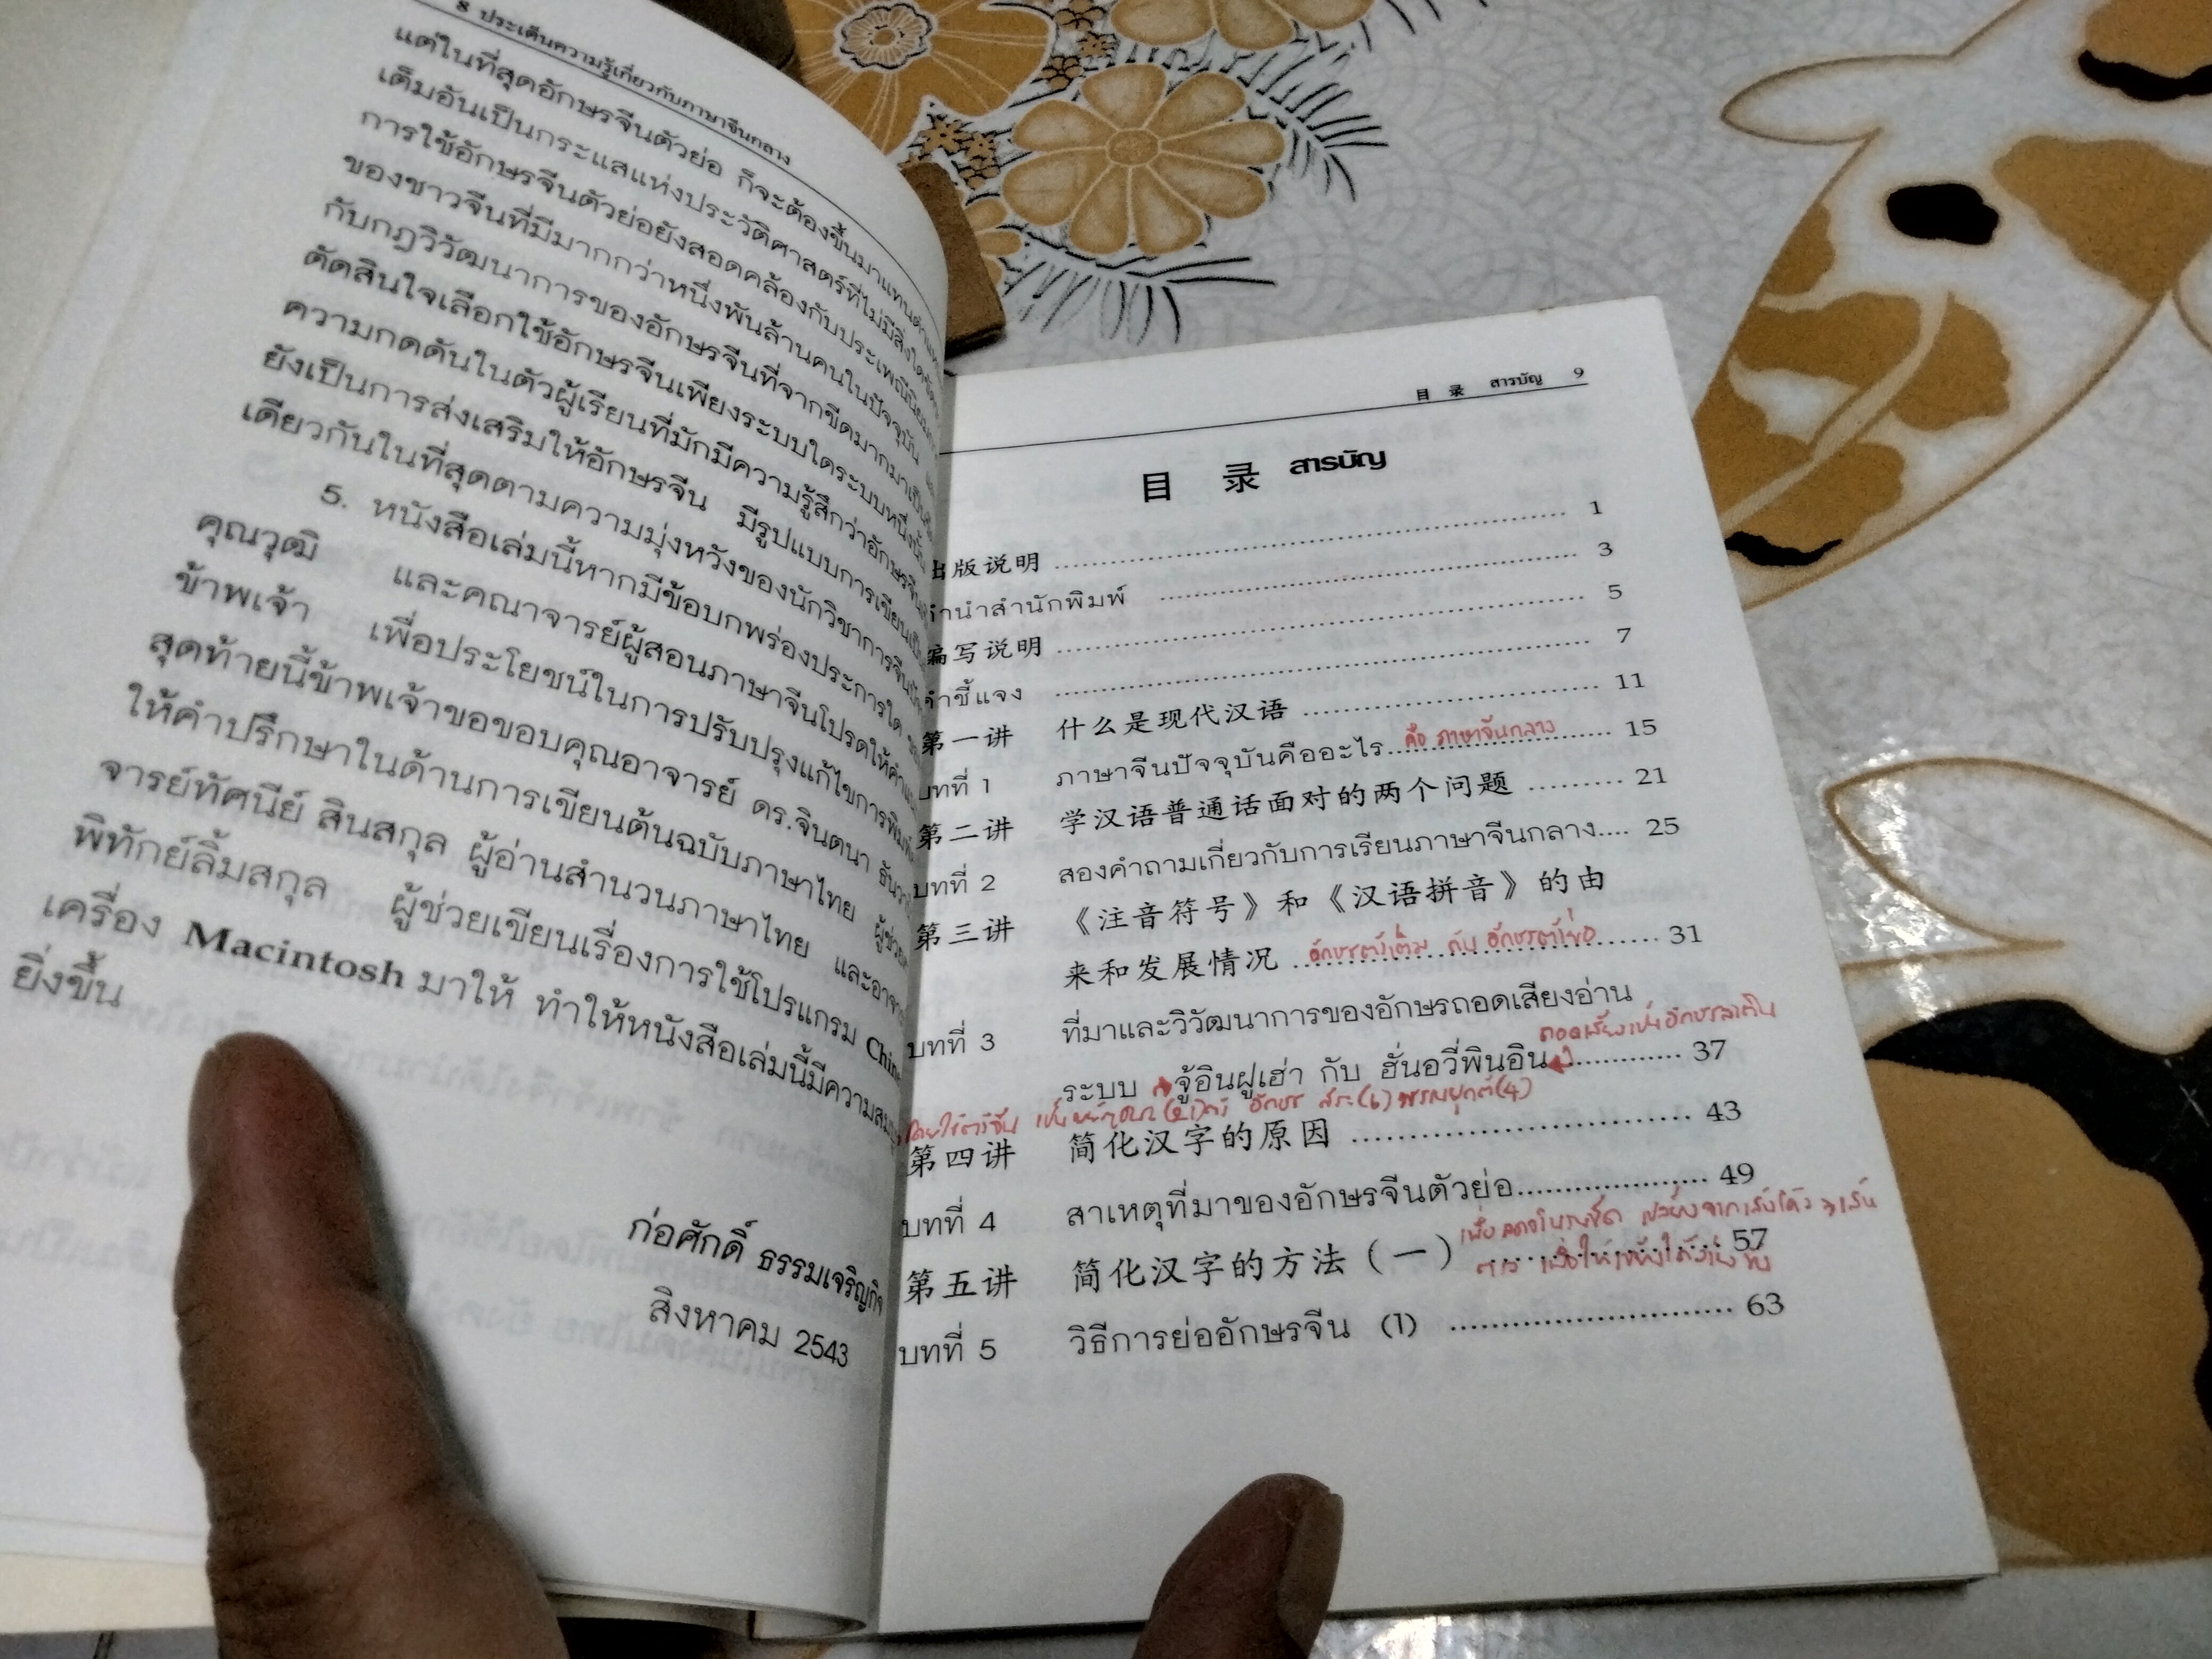 8 ประเด็นความรู้เกี่ยวกับภาษาจีนกลาง
แต่ในที่สุดอักษรจีนตัวย่อ ก็จะต้องขึ้นมาแทน
เต็มอันเป็นกระแสแห่งประวัติศาสตร์ที่ไม่มีสิ่งใด
การใช้อักษรจีนตัวย่อยังสอดคล้องกับประเพณีนิยม
ของชาวจีนที่มีมากกว่าหนึ่งพันล้านคนในปัจจุบัน
กับกฎวิวัฒนาการของอักษรจีนที่จากขีดมากมาเป็น
ตัดสินใจเลือกใช้อักษรจีนเพียงระบบใดระบบหนึ่งนั้น
ความกดดันในตัวผู้เรียนที่มักมีความรู้สึกว่าอักษรจีน
ยังเป็นการส่งเสริมให้อักษรจีน มีรูปแบบการเขียน
เดียวกันในที่สุดตามความมุ่งหวังของนักวิชาการจีน
5. หนังสือเล่มนี้หากมีข้อบกพร่องประการใด
คุณวุฒิ และคณาจารย์ผู้สอนภาษาจีนโปรดให้
ข้าพเจ้า เพื่อประโยชน์ในการปรับปรุงแก้ไขการพิมพ์
สุดท้ายนี้ข้าพเจ้าขอขอบคุณอาจารย์ ดร.จินตนา
ให้คำปรึกษาในด้านการเขียนต้นฉบับภาษาไทย
จารย์ทัศนีย์ สินสกุล ผู้อ่านสำนวนภาษาไทย และ
พิทักย์ลิ้มสกุล ผู้ช่วยเขียนเรื่องการใช้โปรแกรม
เครื่อง Macintosh มาให้ ทำให้หนังสือเล่มนี้มีความ
ยิ่งขึ้น
ก่อศักดิ์ ธรรมเจริญกิจ
สิงหาคม 2543
目 录 สารบัญ 9
目 录 สารบัญ
出版说明 .................... 1
คำนำสำนักพิมพ์ .................... 3
编写说明 .................... 5
คำชี้แจง .................... 7
第一讲 什么是现代汉语 .................... 11
บทที่ 1 ภาษาจีนปัจจุบันคืออะไร คือ ภาษาจีนกลาง .................... 15
第二讲 学汉语普通话面对的两个问题 ......... 21
บทที่ 2 สองคำถามเกี่ยวกับการเรียนภาษาจีนกลาง.... 25
第三讲 《注音符号》和《汉语拼音》的由
来和发展情况 .................... 31
อักษรตัวเต็ม กับ อักษรตัวย่อ
บทที่ 3 ที่มาและวิวัฒนาการของอักษรถอดเสียงอ่าน
ถอดเสียงเป็นอักษรลาติน
ระบบ จู้อินฝูเฮ่า กับ ฮั่นอวี่พินอิน............ 37
第四讲 简化汉字的原因 .................... 43
บทที่ 4 สาเหตุที่มาของอักษรจีนตัวย่อ.................... 49
第五讲 简化汉字的方法（一） .................... 57
บทที่ 5 วิธีการย่ออักษรจีน (1) .................... 63